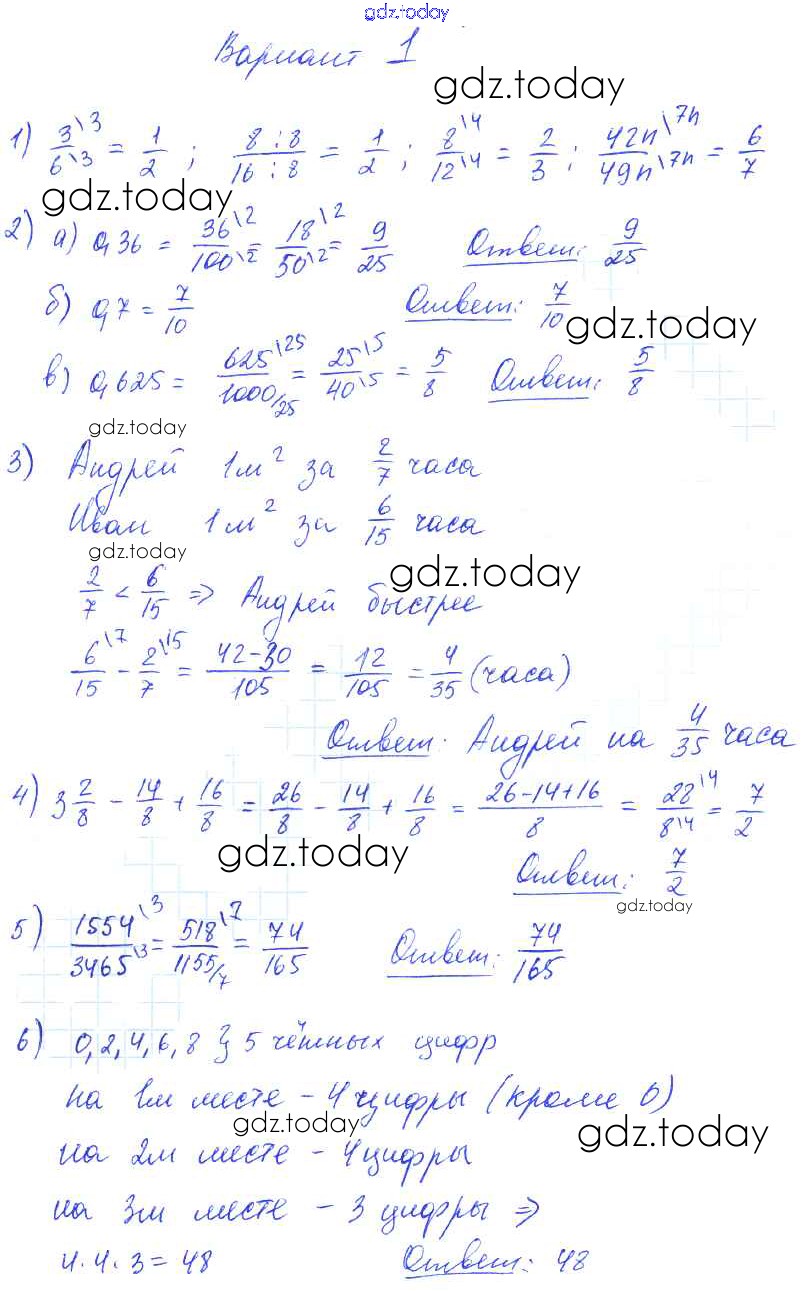 gdz.today
Вариант 1
gdz.today
1) 3\3/6\3 = 1/2 ; 8:8/16:8 = 1/2 ; 8\4/12\4 = 2/3 ; 42n\7n/49n\7n = 6/7
gdz.today
2) а) 0,36 = 36\2/100\2 = 18\2/50\2 = 9/25 Ответ: 9/25
б) 0,7 = 7/10 Ответ: 7/10
gdz.today
в) 0,625 = 625\25/1000/25 = 25\5/40\5 = 5/8 Ответ: 5/8
gdz.today
3) Андрей 1м² за 2/7 часа
Иван 1м² за 6/15 часа
gdz.today
gdz.today
2/7 < 6/15 => Андрей быстрее
6\7/15 - 2\15/7 = 42-30/105 = 12/105 = 4/35 (часа)
Ответ: Андрей на 4/35 часа
4) 3 2/8 - 14/8 + 16/8 = 26/8 - 14/8 + 16/8 = 26-14+16/8 = 28\4/8\4 = 7/2
gdz.today
Ответ: 7/2
gdz.today
5) 1554\3/3465\3 = 518\7/1155/7 = 74/165 Ответ: 74/165
6) 0,2,4,6,8 } 5 чётных цифр
на 1м месте - 4 цифры (кроме 0)
gdz.today
gdz.today
на 2м месте - 4 цифры
на 3м месте - 3 цифры =>
4·4·3=48 Ответ: 48